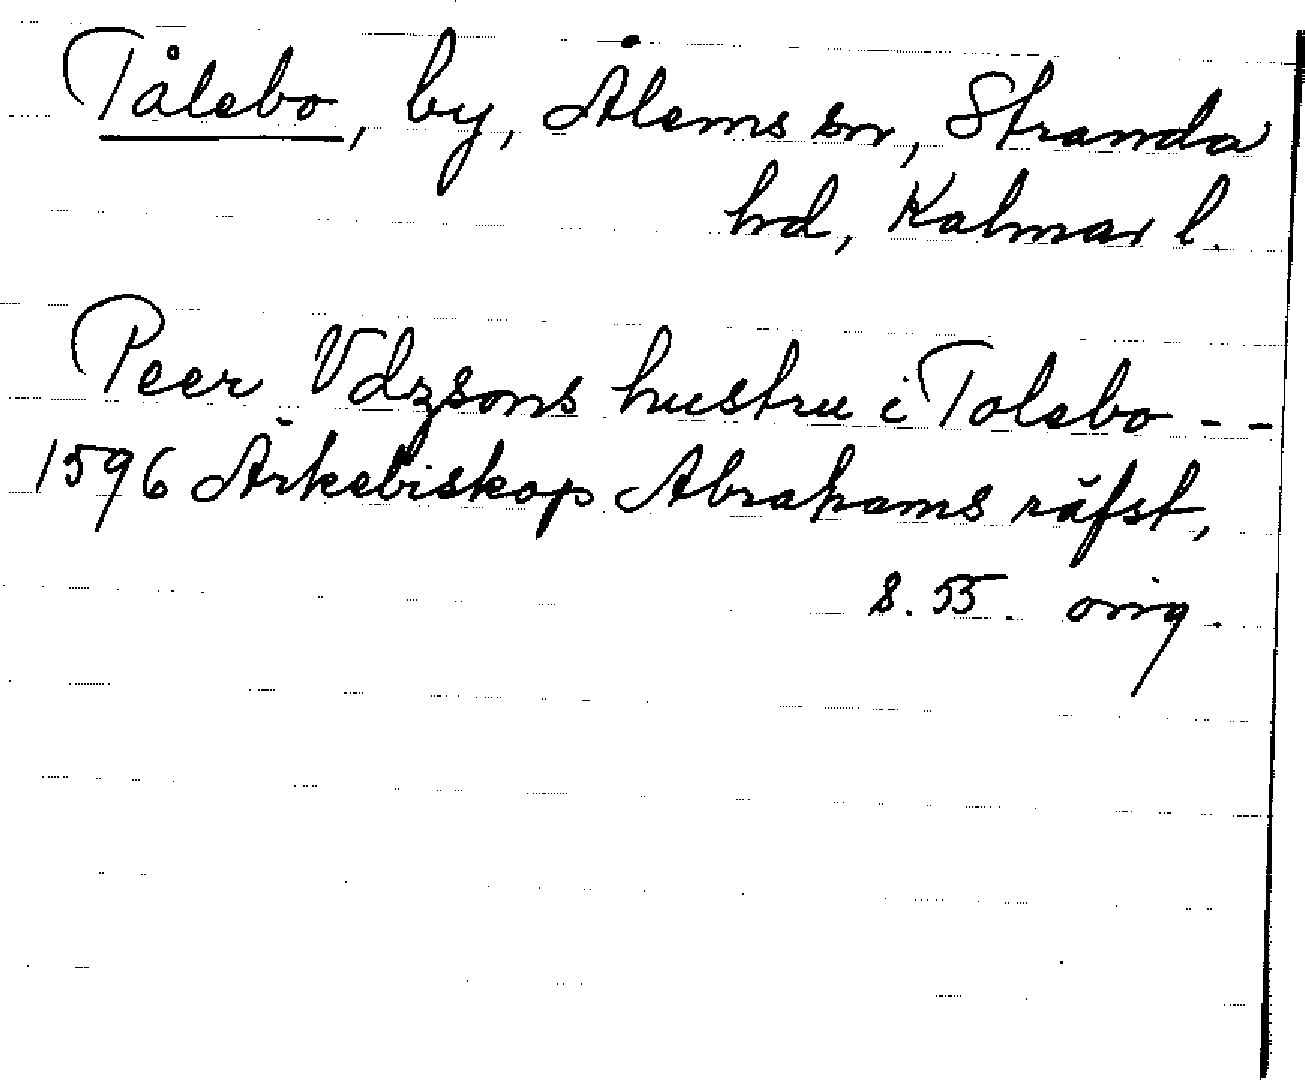 Tålebo, by, Ålems sn, Stranda
hd, Kalmar l.
Peer Vdzsons hustru i Tolebo - -
1596 Ärkebiskop Abrahams räfst,
s. 55. orig.